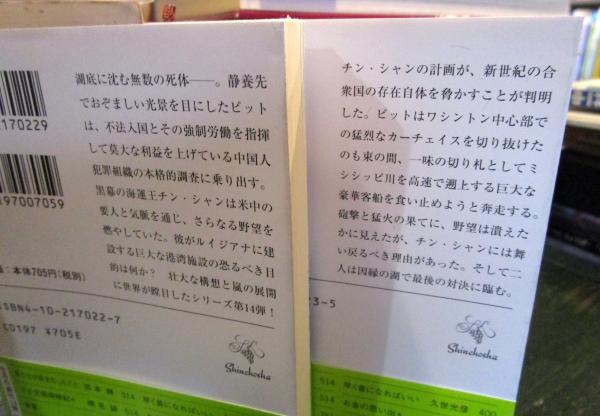 湖底に沈む無数の死体――。静養先
でおぞましい光景を目にしたピット
は、不法入国とその強制労働を指揮
して莫大な利益を上げている中国人
犯罪組織の本格的調査に乗り出す。
黒幕の海運王チン・シャンは米中の
要人と気脈を通じ、さらなる野望を
燃やしていた。彼がルイジアナに建
設する巨大な港湾施設の恐るべき目
的は何か？ 壮大な構想と嵐の展開
に世界が瞠目したシリーズ第14弾！
2170229
197007059
本体705円(税別)
ISBN4-10-217022-7
C0197 ¥705E
Shinchosha
チン・シャンの計画が、新世紀の合
衆国の存在自体を脅かすことが判明
した。ピットはワシントン中心部で
の猛烈なカーチェイスを切り抜けた
のも束の間、一味の切り札としてミ
シシッピ川を高速で遡上する巨大な
豪華客船を食い止めようと奔走する。
砲撃と猛火の果てに、野望は潰えた
かに見えたが、チン・シャンには舞
い戻るべき理由があった。そして二
人は因縁の湖で最後の対決に臨む。
3-5
Shinchosha
514 早く昔になればいい 久世光彦 400
514